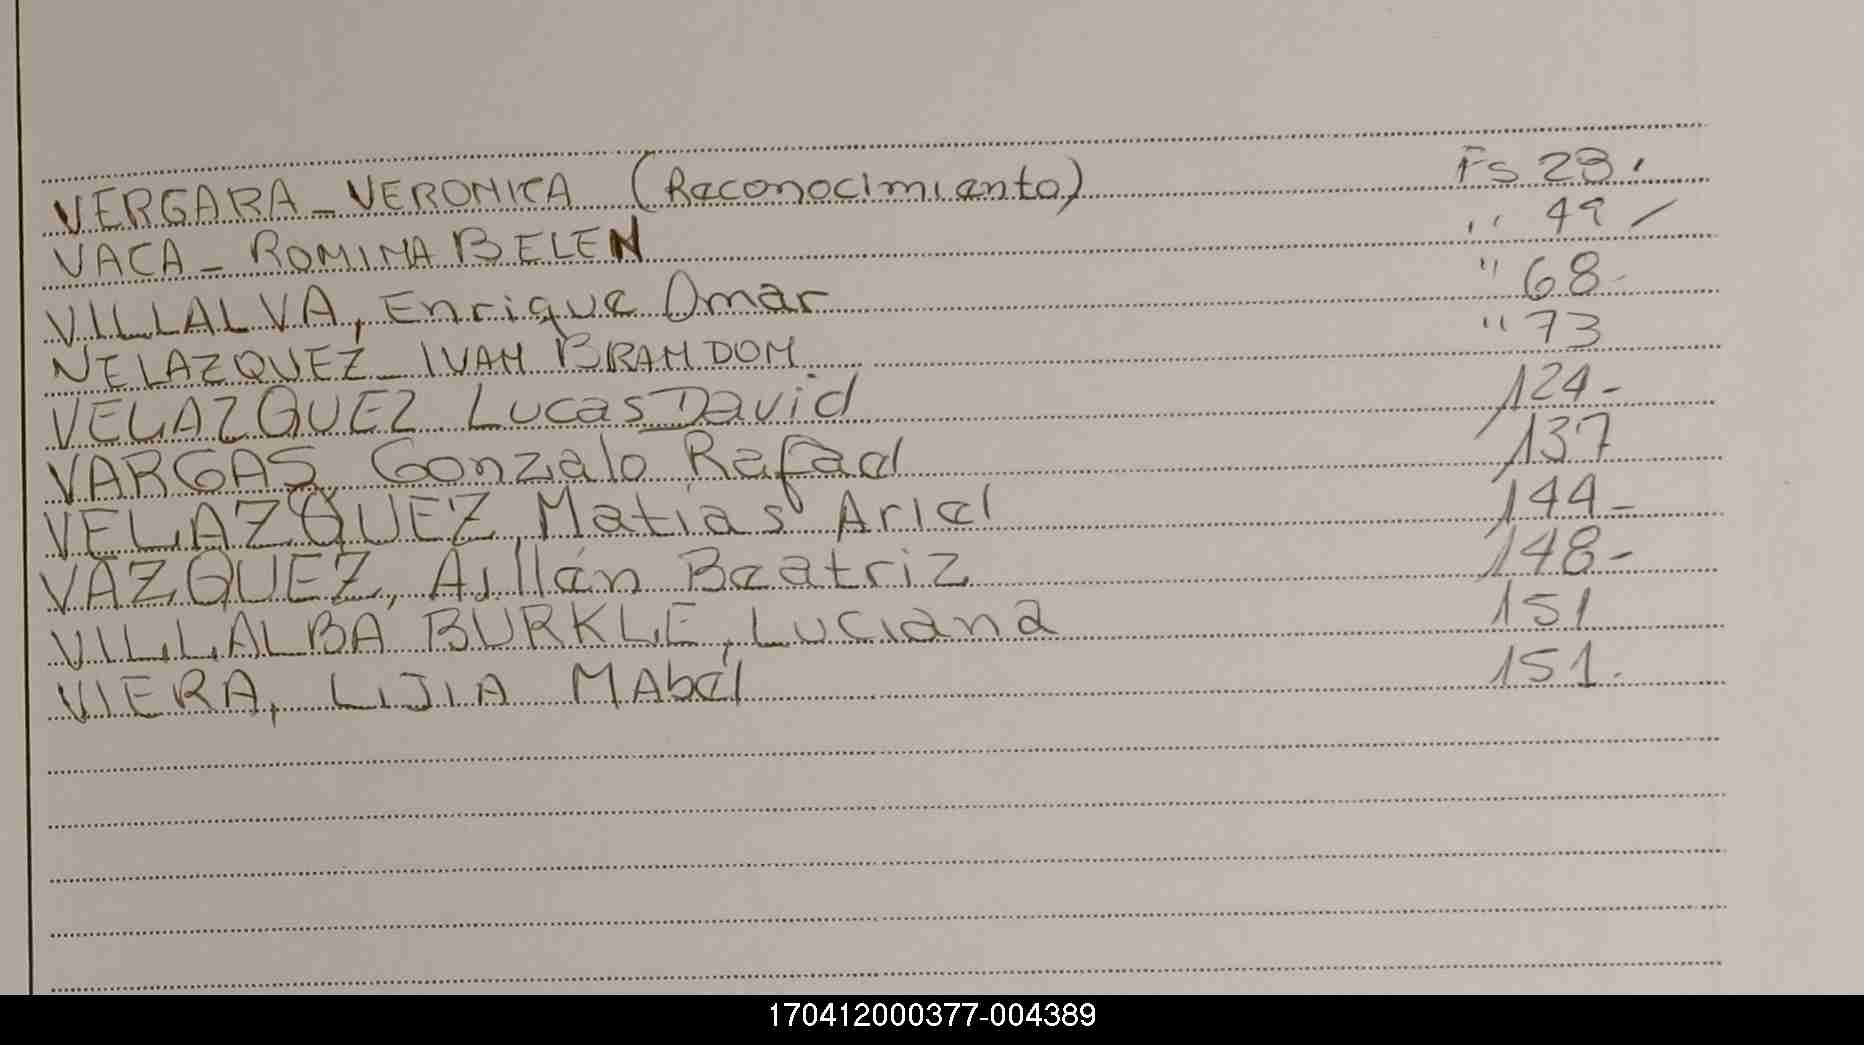 VERGARA - VERONICA (Reconocimiento) Fs 23.
VACA - ROMINA BELEN " 49 /
VILLALVA, Enrique Omar " 68 -
VELAZQUEZ - IVAN BRANDON " 73
VELAZQUEZ Lucas David 124 -
VARGAS, Gonzalo Rafael 137
VELAZQUEZ, Matias Ariel 144 -
VAZQUEZ, Beatriz 148 -
VILLALBA BURKLE, Luciana 151
VIERA, LIJIA MAbel 151.
170412000377-004389